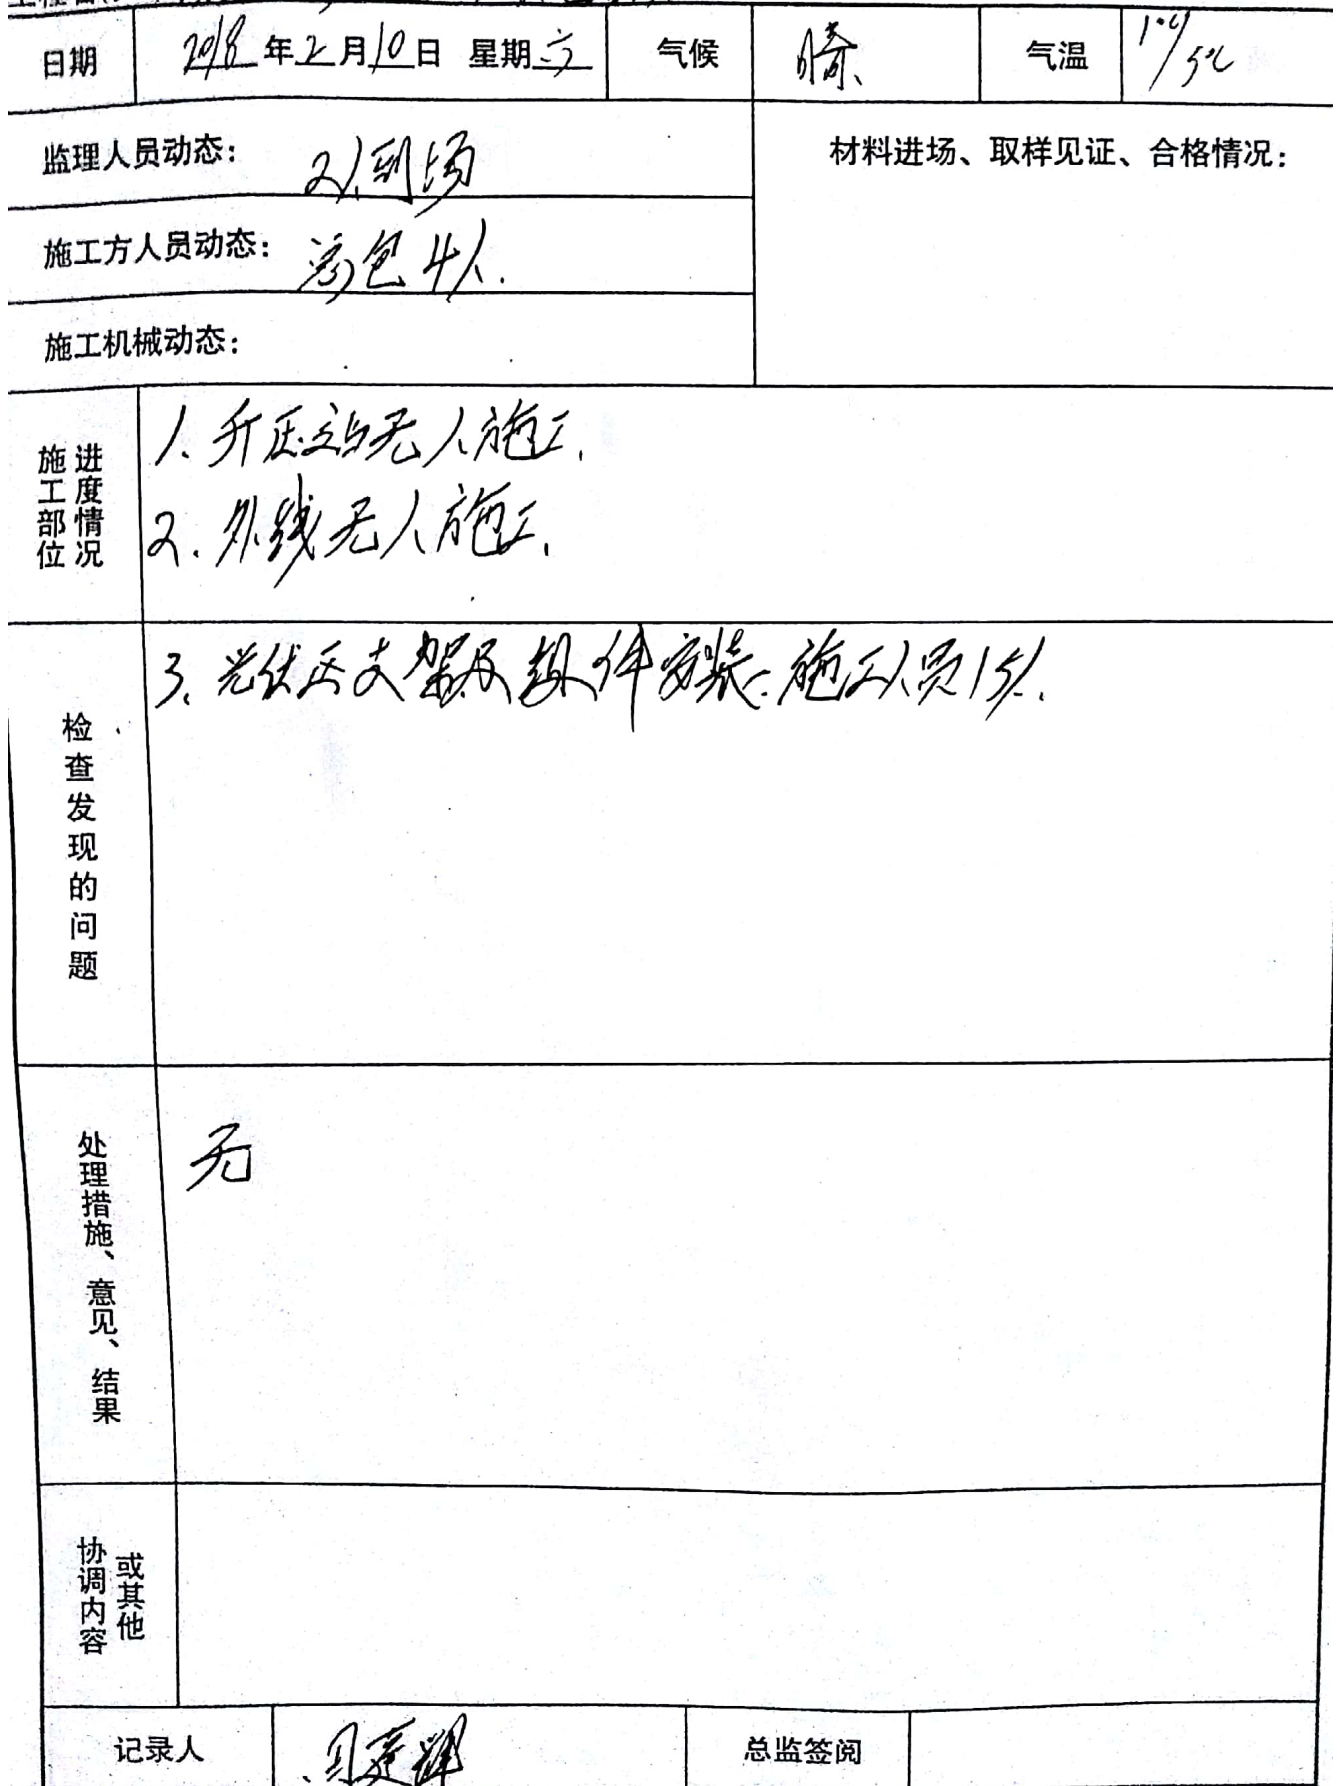 日期 2018年2月10日 星期六 气候 晴 气温 1℃/5℃
监理人员动态： 2人到场
材料进场、取样见证、合格情况：
施工方人员动态： 总包4人.
施工机械动态：
施工部位
进度情况
1. 升压站无人施工.
2. 外线无人施工.
检查发现的问题
3. 光伏区支架及组件安装: 施工人员15人.
处理措施、意见、结果
无
协调内容
或其他
记录人
总监签阅